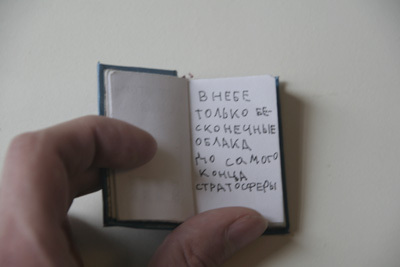 В НЕБЕ
ТОЛЬКО БЕ-
СКОНЕЧНЫЕ
ОБЛАКА
ДО САМОГО
КОНЦА
СТРАТОСФЕРЫ